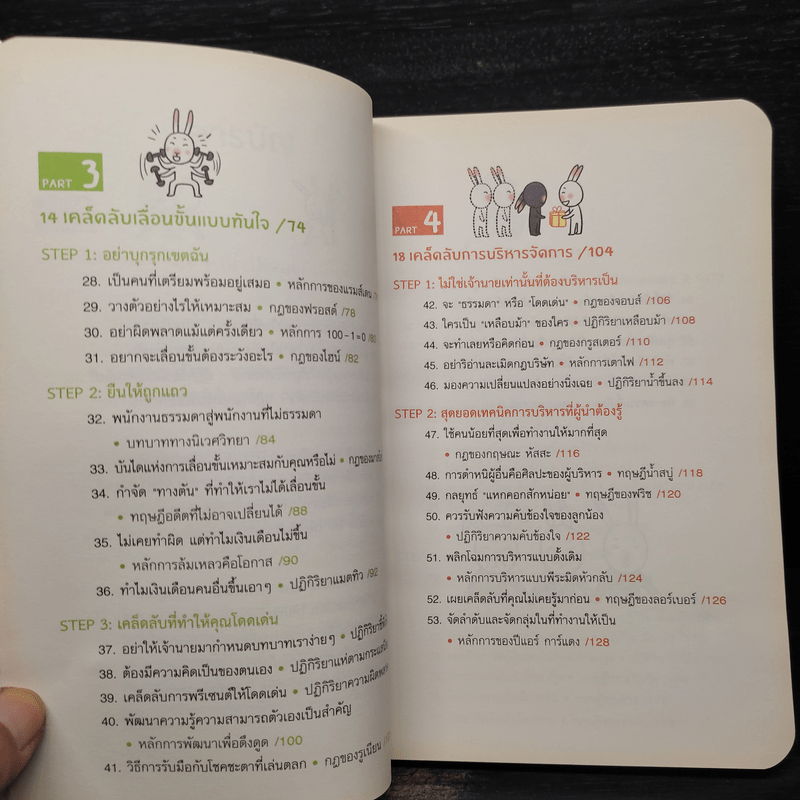 PART 3
14 เคล็ดลับเลื่อนขั้นแบบทันใจ /74
STEP 1: อย่าบุกรุกเขตฉัน
28. เป็นคนที่เตรียมพร้อมอยู่เสมอ • หลักการของแรมส์เดน
29. วางตัวอย่างไรให้เหมาะสม • กฎของฟรอสต์ /78
30. อย่าผิดพลาดแม้แต่ครั้งเดียว • หลักการ 100-1=0 /80
31. อยากจะเลื่อนขั้นต้องระวังอะไร • กฎของไฮน์ /82
STEP 2: ยืนให้ถูกแถว
32. พนักงานธรรมดาสู่พนักงานที่ไม่ธรรมดา
• บทบาททางนิเวศวิทยา /84
33. บันไดแห่งการเลื่อนขั้นเหมาะสมกับคุณหรือไม่ •
34. กำจัด "ทางตัน" ที่ทำให้เราไม่ได้เลื่อนขั้น
• ทฤษฎีอดีตที่ไม่อาจเปลี่ยนได้ /88
35. ไม่เคยทำผิด แต่ทำไมเงินเดือนไม่ขึ้น
• หลักการล้มเหลวคือโอกาส /90
36. ทำไมเงินเดือนคนอื่นขึ้นเอาๆ • ปฏิกิริยาแมตทิว /92
STEP 3: เคล็ดลับที่ทำให้คุณโดดเด่น
37. อย่าให้เจ้านายมากำหนดบทบาทเราง่ายๆ •
38. ต้องมีความคิดเป็นของตนเอง • ปฏิกิริยาแห่ตามกระแส
39. เคล็ดลับการพรีเซนต์ให้โดดเด่น • ปฏิกิริยาความผิดพลาด
40. พัฒนาความรู้ความสามารถตัวเองเป็นสำคัญ
• หลักการพัฒนาเพื่อดึงดูด /100
41. วิธีการรับมือกับโชคชะตาที่เล่นตลก • กฎของรูเนียน
PART 4
18 เคล็ดลับการบริหารจัดการ /104
STEP 1: ไม่ใช่เจ้านายเท่านั้นที่ต้องบริหารเป็น
42. จะ "ธรรมดา" หรือ "โดดเด่น" • กฎของจอบส์ /106
43. ใครเป็น "เหลือบม้า" ของใคร • ปฏิกิริยาเหลือบม้า /108
44. จะทำเลยหรือคิดก่อน • กฎของกรูสเตอร์ /110
45. อย่าริอ่านละเมิดกฎบริษัท • หลักการเตาไฟ /112
46. มองความเปลี่ยนแปลงอย่างนิ่งเฉย • ปฏิกิริยาน้ำขึ้นลง /114
STEP 2: สุดยอดเทคนิคการบริหารที่ผู้นำต้องรู้
47. ใช้คนน้อยที่สุดเพื่อทำงานให้มากที่สุด
• กฎของกฤษณะ หัสสะ /116
48. การตำหนิผู้อื่นคือศิลปะของผู้บริหาร • ทฤษฎีน้ำสบู่ /118
49. กลยุทธ์ "แหกคอกสักหน่อย" • ทฤษฎีของฟริช /120
50. ควรรับฟังความคับข้องใจของลูกน้อง
• ปฏิกิริยาความคับข้องใจ /122
51. พลิกโฉมการบริหารแบบดั้งเดิม
• หลักการบริหารแบบพีระมิดหัวกลับ /124
52. เผยเคล็ดลับที่คุณไม่เคยรู้มาก่อน • ทฤษฎีของลอร์เบอร์ /126
53. จัดลำดับและจัดกลุ่มในที่ทำงานให้เป็น
• หลักการของปีแอร์ การ์แดง /128